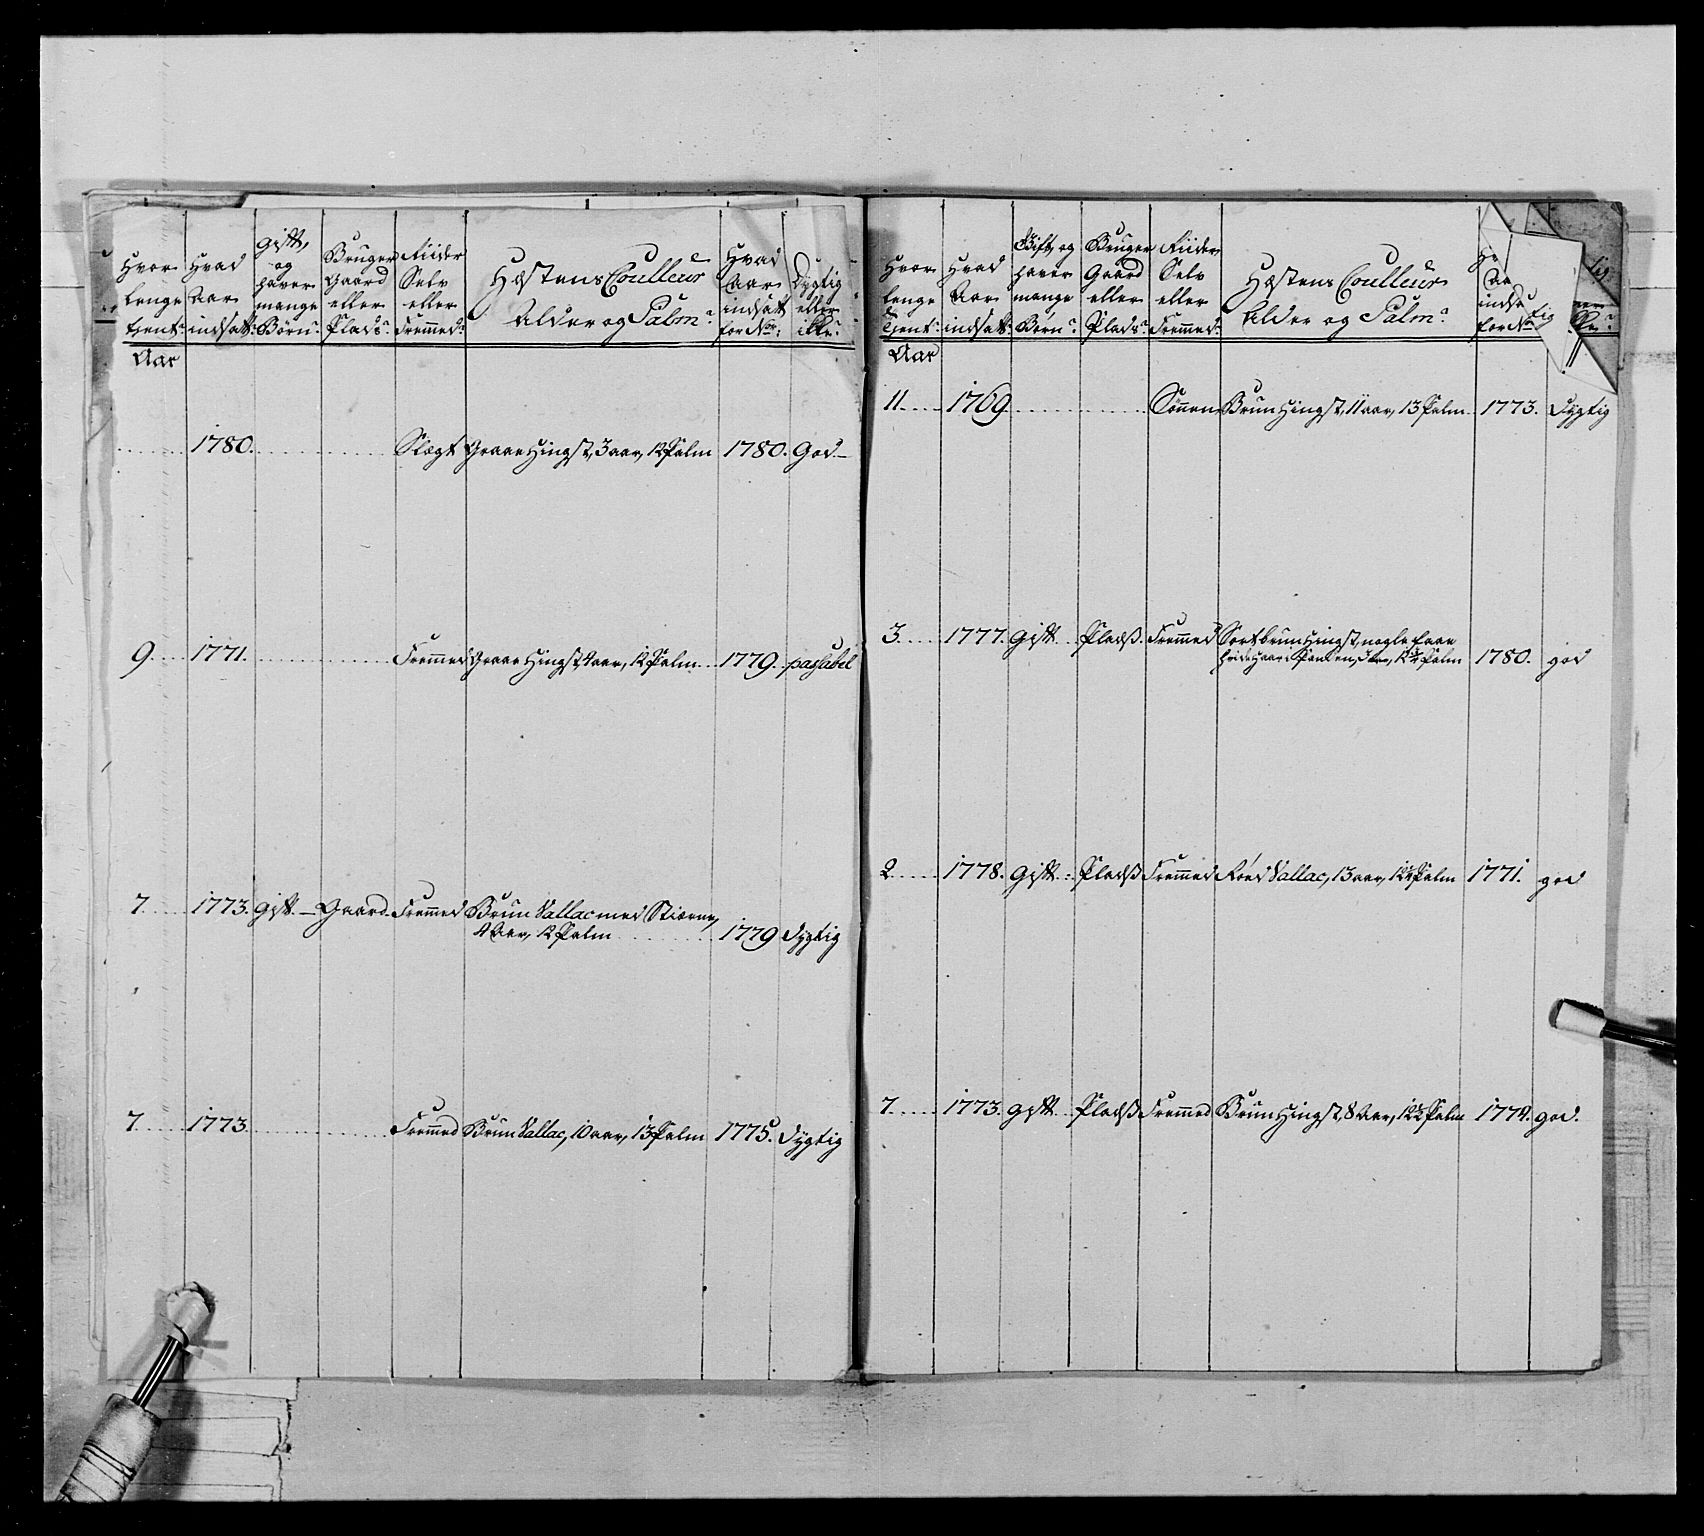 Hvor lenge tient:
Hvad Aar indsatt:
Gift, og haver mange Børn:
Bruger Gaard eller Plads:
Riider Selv eller Fremmed:
Hæstens Coulleur Alder og Palm:
Hvad Aar indsatt for No:
Dygtig eller ikke:
Aar
1780. Slægt Graae Hingst, 3 aar, 12 Palm 1780. God
9. 1771. Fremmed Graae Hingst 4 aar, 12 Palm 1779. passabel
7. 1773. Gift Gaard Fremmed Brun Vallac med Stierne,
4 Aar, 12 Palm 1779 Dygtig
7. 1773 Fremmed Brun Vallac, 10 aar, 13 Palm 1775. Dygtig
Hvor lenge Tient:
Hvad Aar indsatt:
Gift, og haver mange Børn:
Bruger Gaard eller Plads:
Riider Selv eller Fremmed:
Hæstens Coulleur Alder og Palm:
indsa
for No
Aar
11. 1769. Sønnen Brun Hingst, 11 aar, 13 Palm 1773. Dygtig
3. 1777. Gift Pladss. Fremmed Sortbrun Hingst nogle faae
hvide Haar i Panden, 12 3/4 Palm 1780. god
2. 1778. Gift Pladss Fremmed Roed Vallac, 13 aar, 12 1/2 Palm 1771. god
7. 1773. Gift Pladss Fremmed Brun Hingst, 8 Aar, 12 1/2 Palm 1774. god.